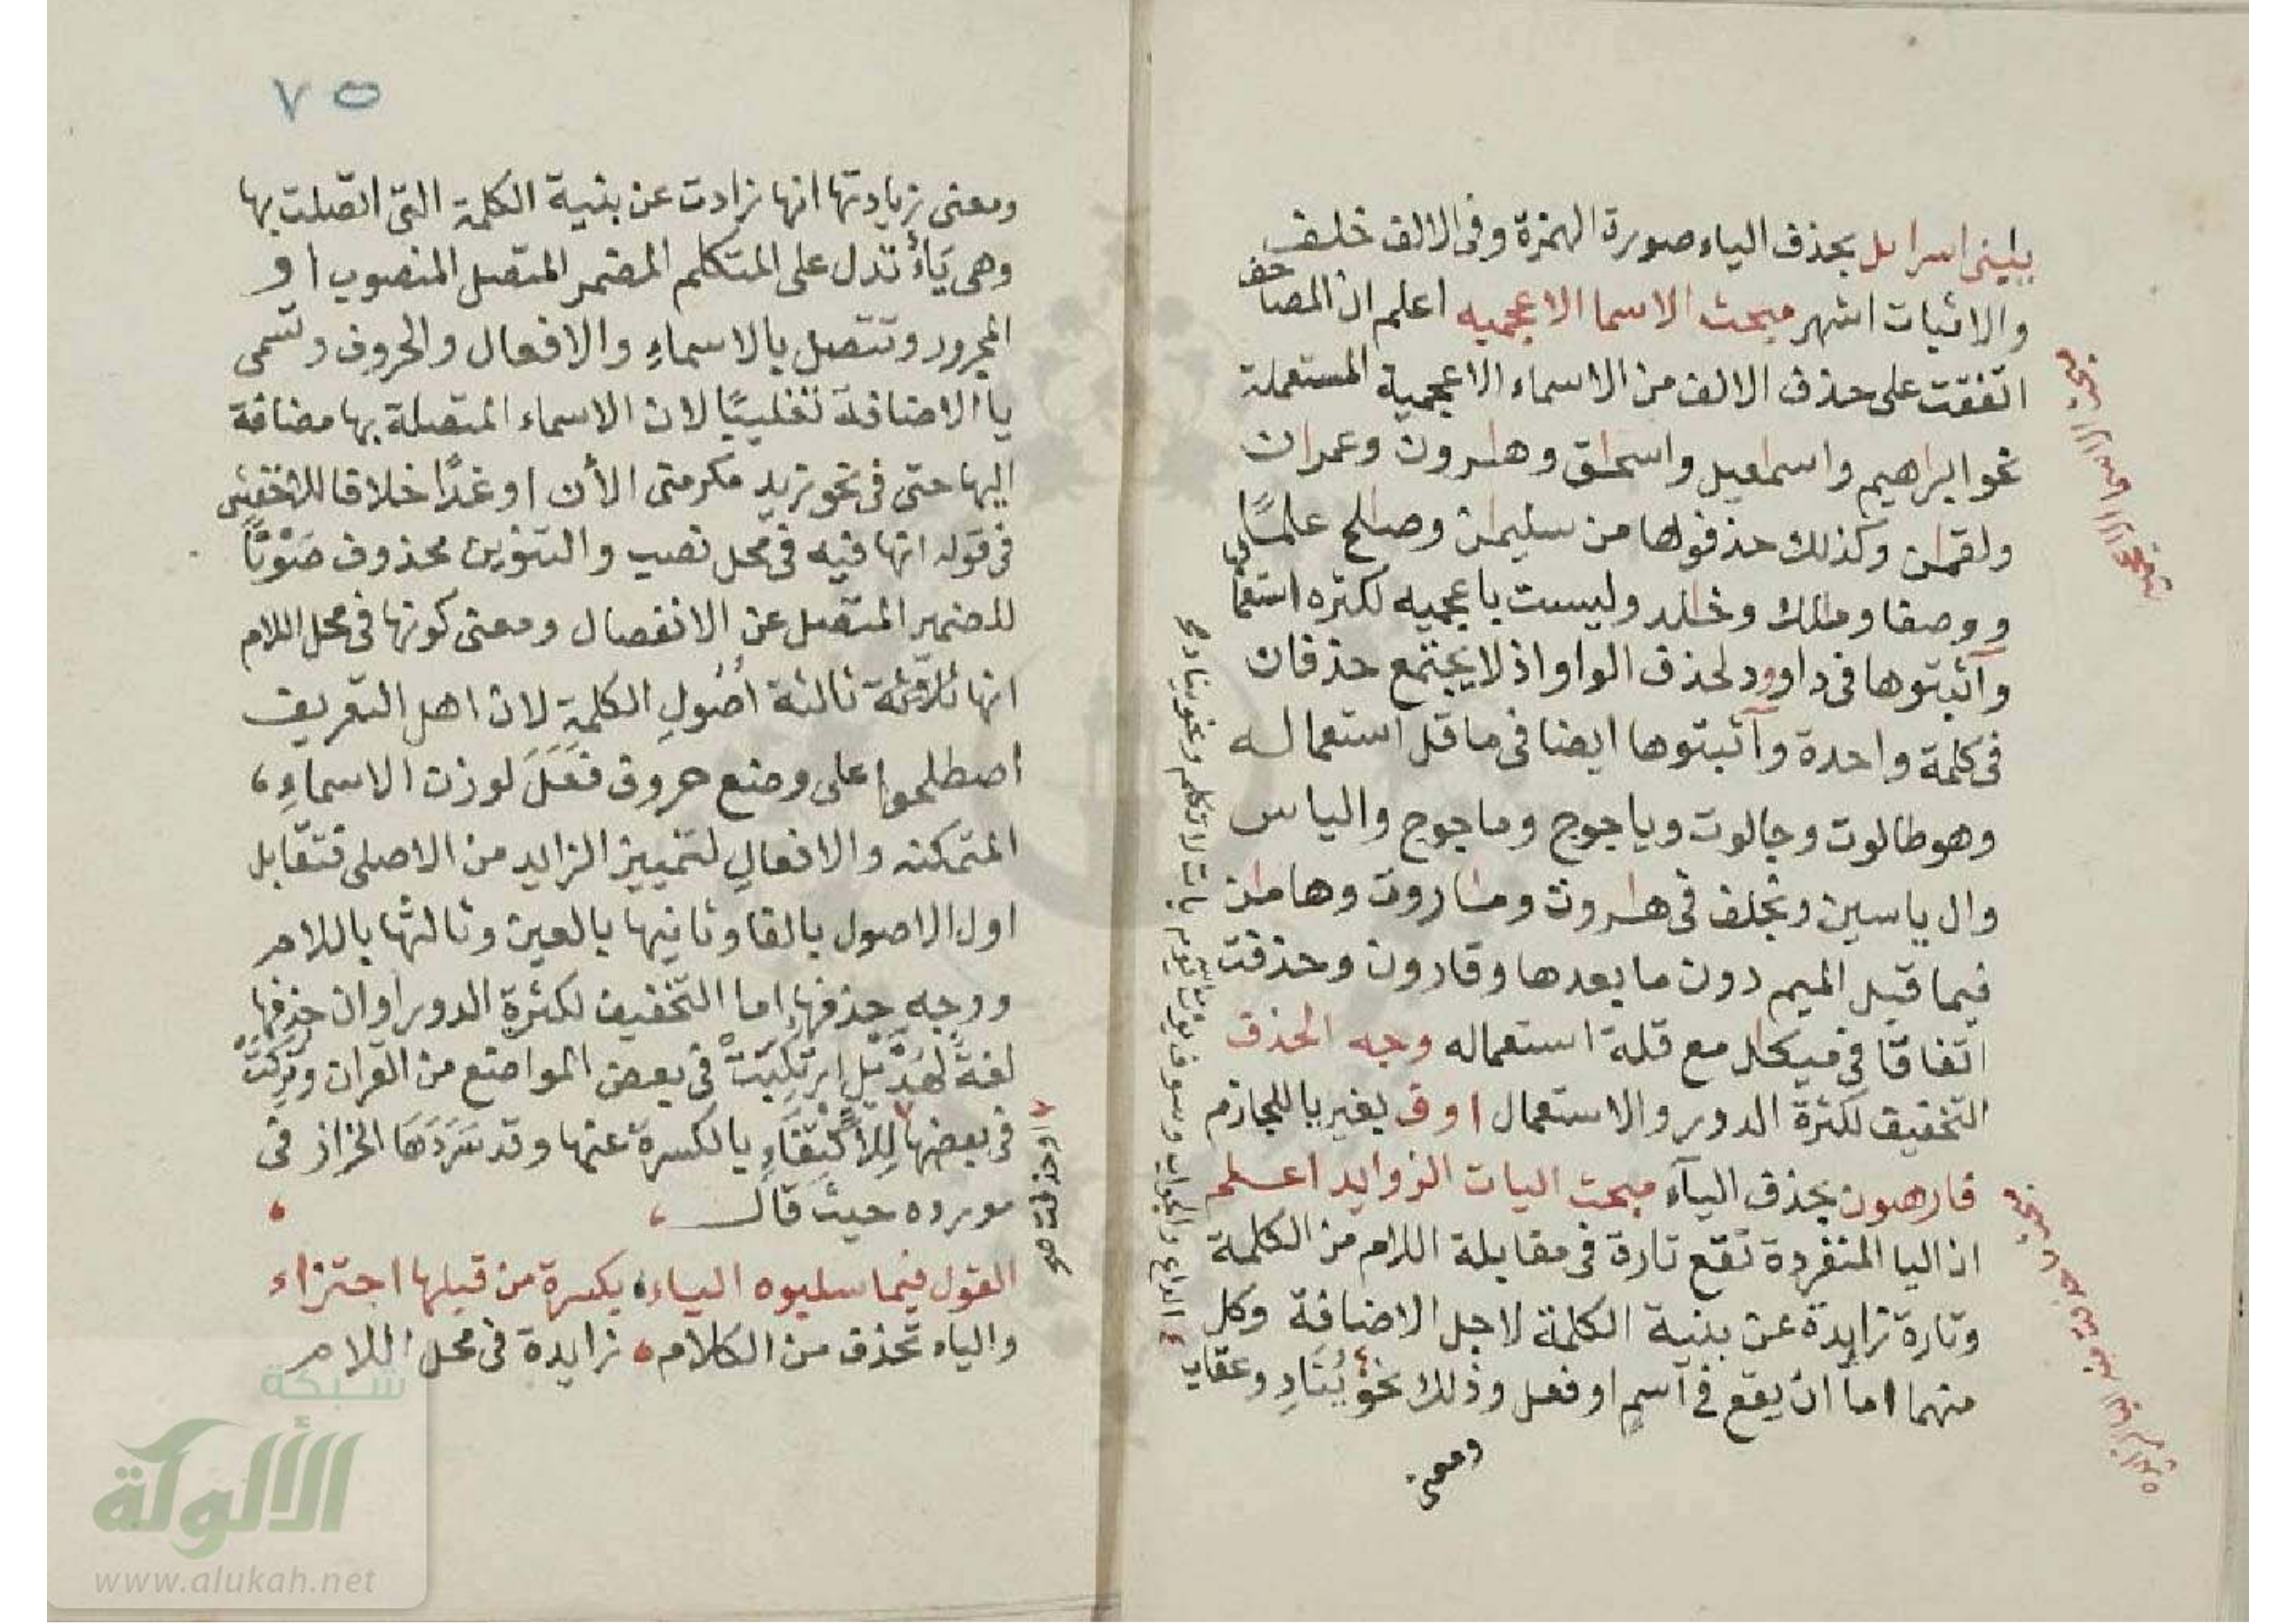 يبني اسراىل بحذف الياء صورة الهمزة وفى الالف خلف
والاثبات اشهر مبحث الاسما الاعجميه اعلم ان المصاحف
اتفقت على حذف الالف من الاسماء الاعجمية المستعملة
نحو ابراهيم واسمعيل واسحاق وهارون وعمران
ولقمان وكذلك حذفوها من سليمان وصالح علمًا
ووصفا ومالك وخالد وليست باعجميه لكثره استعما
وآثبتوها فى داوود لحذف الواو اذ لا يجتمع حذفان
فى كلمة واحدة وآثبتوها ايضا فى ما قل استعماله
وهو طالوت وجالوت وياجوج وماجوج والياس
وال ياسين وبخلف فى هاروت وماروت وهامان
فيما قبل الميم دون ما بعدها وقارون وحذفت
اتفاقا فى ميكال مع قلة استعماله وجه الحذف
التخفيف لكثرة الدور والاستعمال اوف بغير يا للجازم
فارهبون بحذف اليآء مبحث اليات الزوايد اعلم
ان اليا المنفردة تقع تارة فى مقابلة اللام من الكلمة
وتارة زايدة عن بنية الكلمة لاجل الاضافة وكل
منهما اما ان يقع فى آسم او فعل وذلك نحو يُنَادِ وعقاب
ومعنى
٧٥
ومعنى زيادتها انها زادت عن بنية الكلمة التى اتصلت بها
وهى يَاءٌ تدل على المتكلم المضمر المتصل المنصوب او
المجرور وتتصل بالاسماءِ والافعال والحروف وتسمى
يا الاضافة تغليبًا لان الاسماء المتصلة بها مضافة
اليها حتى فى نحو زيد مكرمتى الأن او غدًا خلافا للاخفش
فى قوله انها فيه فى محل نصب والتنوين محذوف صَوْنًا
للضمير المتصل عن الانفصال ومعنى كونها فى محل اللام
انها ثالثة اُصُولِ الكلمةِ لان اهل التعريف
اصطلحوا على وضع حروف فَعَلَ لوزن الاسماءِ
المتمكنه والافعالِ لتمييز الزايد من الاصلى فتقابل
اول الاصول بالفا وثانيها بالعين وثالثها باللام
ووجه حذفها اما التخفيف لكثرةِ الدور او ان حذفها
لغةُ هُذَيْلٍ فى بعض المواضع من القران وتُرِكَتْ
فى بعضها لِلْاكْتِفَاءِ بالكسرة عنها وقد سَرَدَهَا الخراز فى
مورده حيث قال
القول فيما سلبوه الياء بكسرة من قبلها اجتزاء
والياء تحذف من الكلام زايدة فى محل اللام
شبكة
الألوكة
www.alukah.net